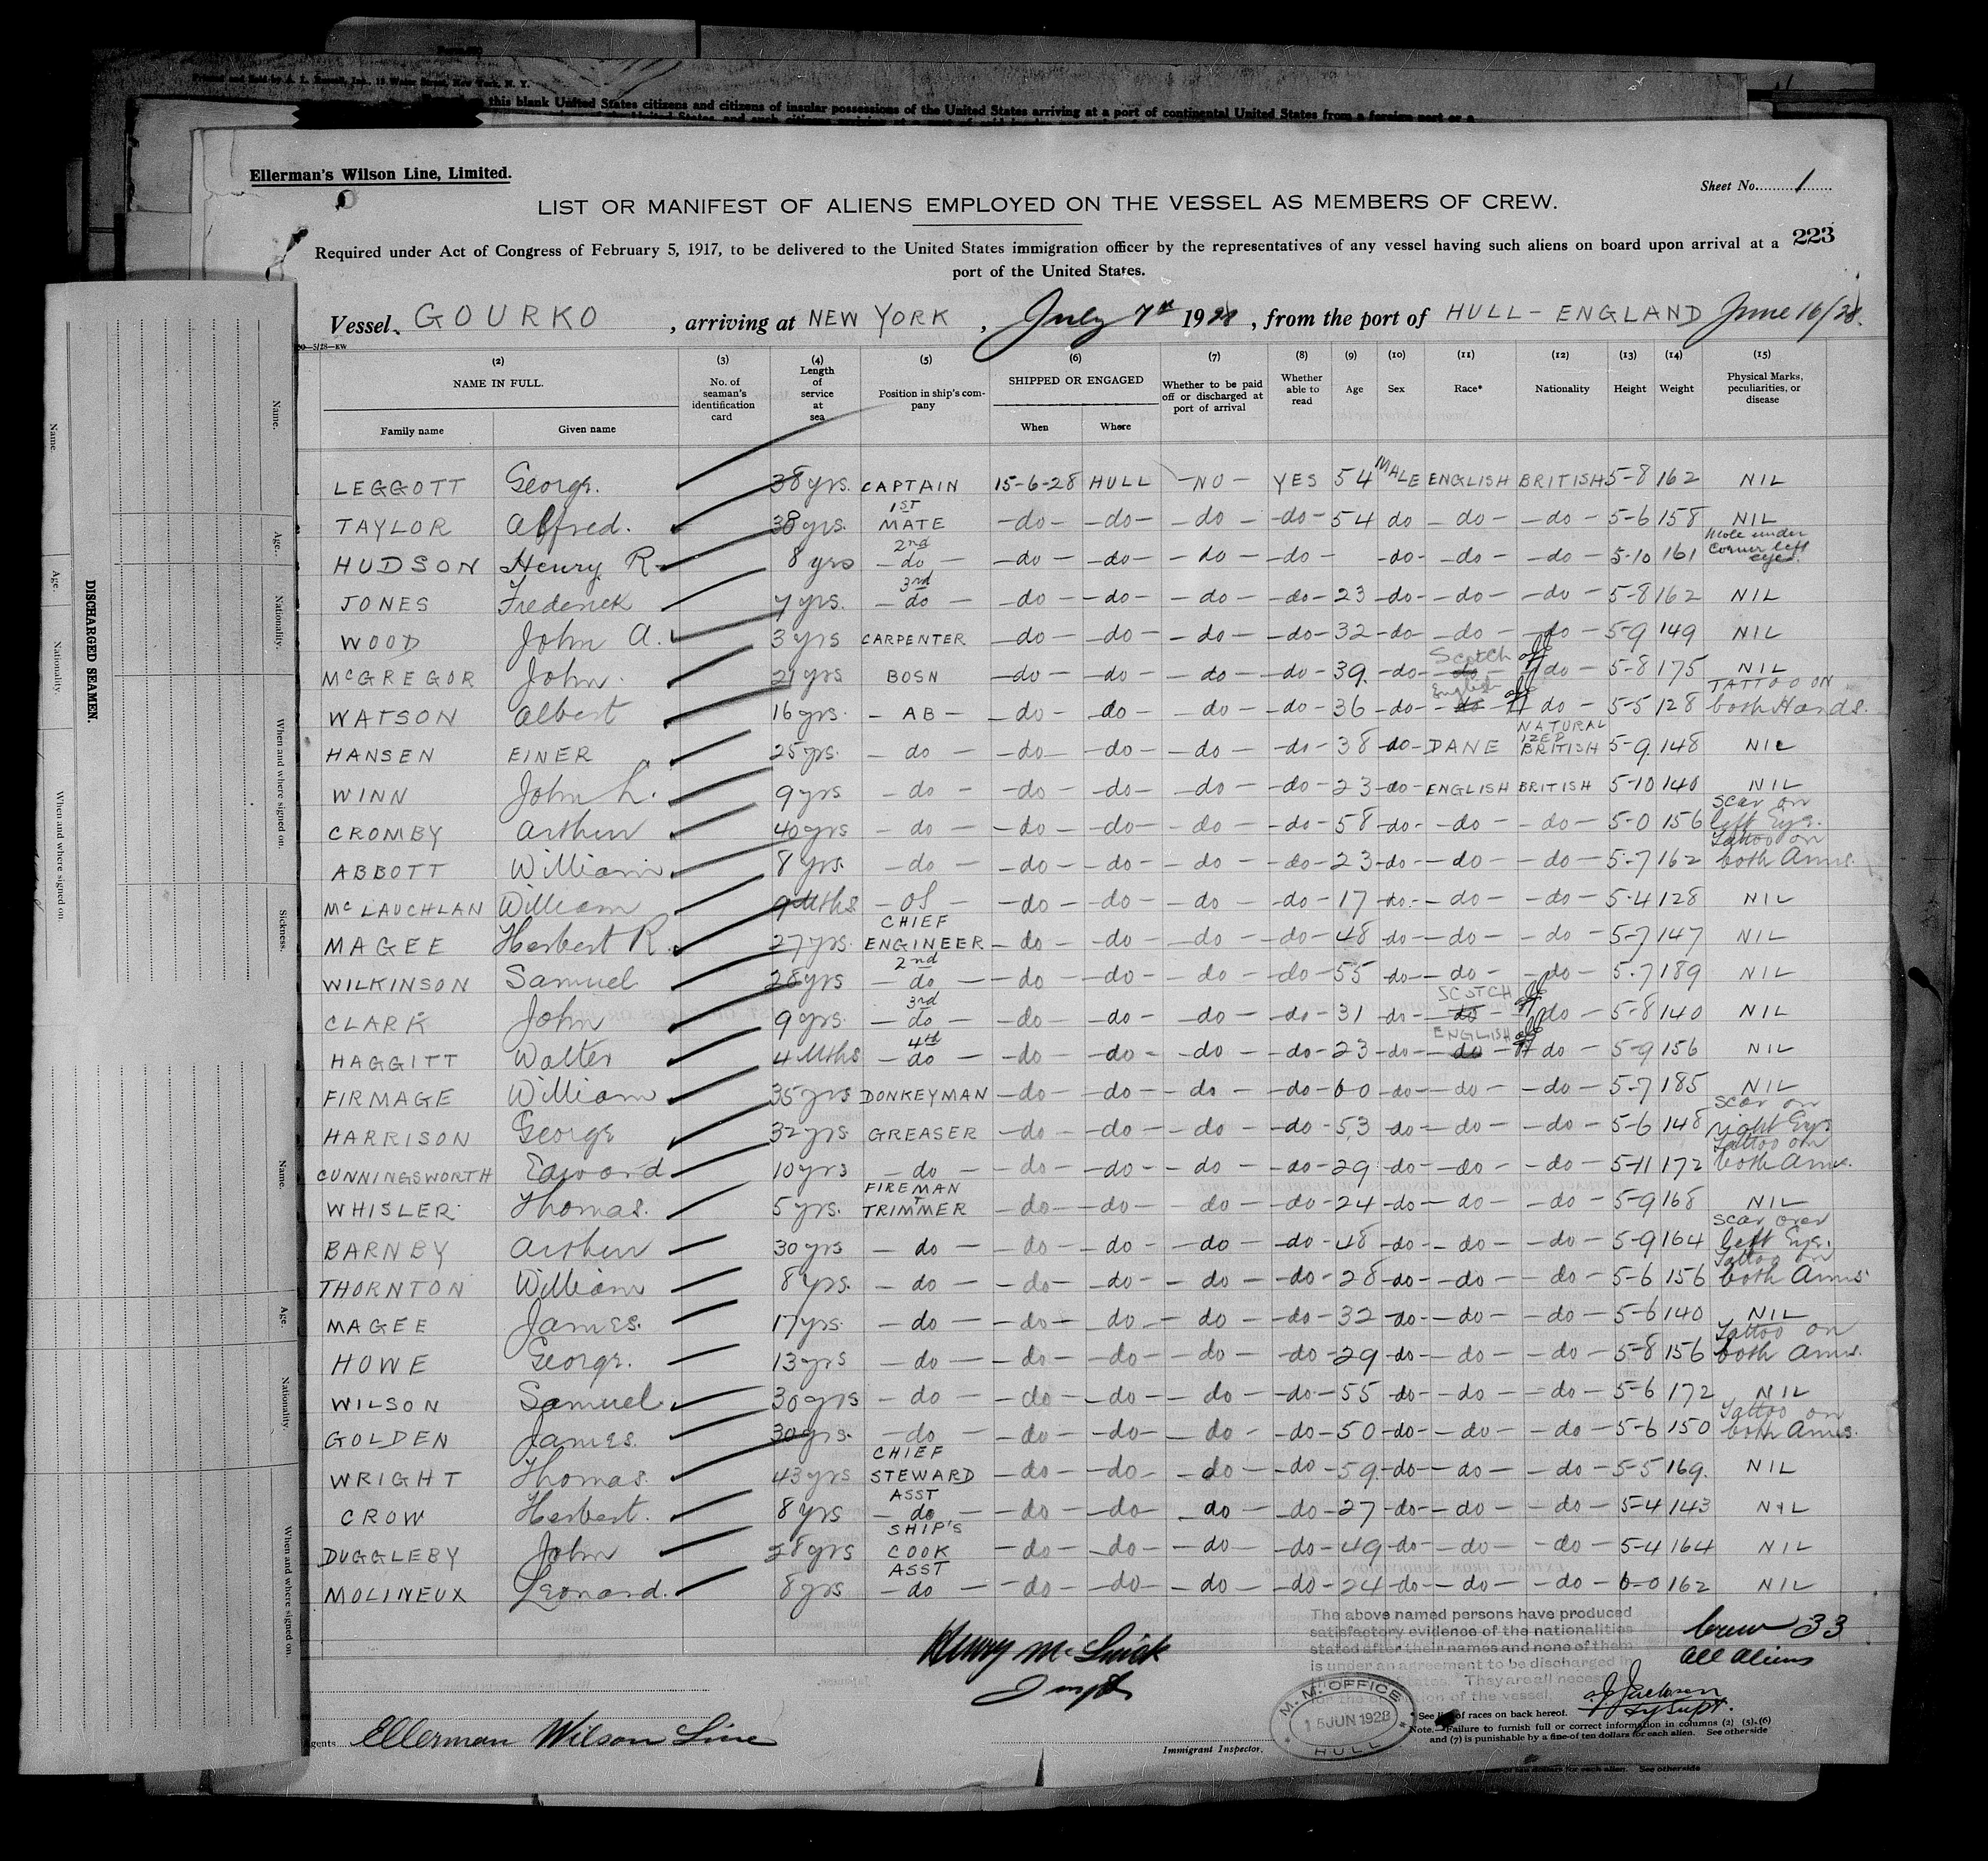 Printed and Sold by A. L. Russell, Inc., 12 Water Street, New York, N. Y.
this blank United States citizens and citizens of insular possessions of the United States arriving at a port of continental United States from a foreign port or a
Ellerman's Wilson Line, Limited.
Sheet No. 1
LIST OR MANIFEST OF ALIENS EMPLOYED ON THE VESSEL AS MEMBERS OF CREW.
223
Required under Act of Congress of February 5, 1917, to be delivered to the United States immigration officer by the representatives of any vessel having such aliens on board upon arrival at a
port of the United States.
Vessel GOURKO, arriving at NEW YORK, July 7th 1928, from the port of HULL - ENGLAND June 16/28.
(2) (3) (4) (5) (6) (7) (8) (9) (10) (11) (12) (13) (14) (15)
NAME IN FULL. No. of seaman's identification card Length of service at sea Position in ship's company SHIPPED OR ENGAGED Whether to be paid off or discharged at port of arrival Whether able to read Age Sex Race* Nationality Height Weight Physical Marks, peculiarities, or disease
Family name Given name When Where
LEGGOTT George. 38 yrs. CAPTAIN 15-6-28 HULL -NO- YES 54 MALE ENGLISH BRITISH 5-8 162 NIL
TAYLOR Alfred. 38 yrs. 1ST MATE -do- -do- -do- -do- 54 do -do- -do- 5-6 158 NIL
HUDSON Henry R. 8 yrs 2nd -do- -do- -do- -do- -do- -do- -do- -do- 5-10 161 Mole under Corner left eye.
JONES Frederick 7 yrs. 3rd -do- -do- -do- -do- -do- 23 -do- -do- -do- 5-8 162 NIL
WOOD John A. 3 yrs CARPENTER -do- -do- -do- -do- 32 -do- -do- -do- 5-9 149 NIL
McGREGOR John. 21 yrs BOSN -do- -do- -do- -do- 39. -do- Scotch -do- -do- 5-8 175 NIL
WATSON Albert 16 yrs. -AB- -do- -do- -do- -do- 36 -do- English -do- -do- 5-5 128 TATTOO ON both Hands.
HANSEN EINER 25 yrs. -do- -do- -do- -do- -do- 38 -do- DANE NATURALIZED BRITISH 5-9. 148 NIL
WINN John L. 9 yrs -do- -do- -do- -do- -do- 23 -do- ENGLISH BRITISH 5-10 140 NIL
CROMBY Arthur 40 yrs -do- -do- -do- -do- -do- 58 -do- -do- -do- 5-0 156 Scar on left Eye.
ABBOTT William 8 yrs. -do- -do- -do- -do- -do- 23 -do- -do- -do- 5-7 162 Tattoo on both Arms.
McLAUCHLAN William 9 Mths -OS- -do- -do- -do- -do- 17 -do- -do- -do- 5-4 128 NIL
MAGEE Herbert R. 27 yrs. CHIEF ENGINEER -do- -do- -do- -do- 48 -do- -do- -do- 5-7 147 NIL
WILKINSON Samuel 28 yrs 2nd -do- -do- -do- -do- -do- 55 -do- -do- -do- 5-7 189 NIL
CLARK John 9 yrs. 3rd -do- -do- -do- -do- -do- 31 -do- SCOTCH -do- -do- 5-8 140 NIL
HAGGITT Walter 4 Mths 4th -do- -do- -do- -do- -do- 23 -do- ENGLISH -do- -do- 5-9 156 NIL
FIRMAGE William 35 yrs DONKEYMAN -do- -do- -do- -do- 60 -do- -do- -do- 5-7 185 NIL
HARRISON George 32 yrs GREASER -do- -do- -do- -do- 53 -do- -do- -do- 5-6 148 Scar on right Eye
CUNNINGSWORTH Edward 10 yrs -do- -do- -do- -do- -do- 29 -do- -do- -do- 5-11 172 Tattoo on both Arms.
WHISLER Thomas. 5 yrs. FIREMAN + TRIMMER -do- -do- -do- -do- 24 -do- -do- -do- 5-9 168 NIL
BARNBY Arthur 30 yrs -do- -do- -do- -do- -do- 48 -do- -do- -do- 5-9 164 Scar over left Eye.
THORNTON William 8 yrs. -do- -do- -do- -do- -do- 28 -do- -do- -do- 5-6 156 Tattoo on both Arms
MAGEE James. 17 yrs. -do- -do- -do- -do- -do- 32 -do- -do- -do- 5-6 140 NIL
HOWE George. 13 yrs -do- -do- -do- -do- -do- 29 -do- -do- -do- 5-8 156 Tattoo on both Arms.
WILSON Samuel. 30 yrs -do- -do- -do- -do- -do- 55 -do- -do- -do- 5-6 172 NIL
GOLDEN James. 30 yrs. -do- -do- -do- -do- -do- 50 -do- -do- -do- 5-6 150 Tattoo on both Arms.
WRIGHT Thomas. 43 yrs CHIEF STEWARD -do- -do- -do- -do- 59. -do- -do- -do- 5-5 169. NIL
CROW Herbert. 8 yrs ASST -do- -do- -do- -do- -do- 27 -do- -do- -do- 5-4 143 NIL
DUGGLEBY John 28 yrs SHIP'S COOK -do- -do- -do- -do- 49 -do- -do- -do- 5-4 164 NIL
MOLINEUX Leonard. 8 yrs ASST -do- -do- -do- -do- -do- 24 -do- -do- -do- 6-0 162 NIL
The above named persons have produced
satisfactory evidence of the nationalities
stated after their names and none of them
is under an agreement to be discharged in
They are all necess
of the vessel.
Crew 33
All Aliens
Henry
M. M. OFFICE
15 JUN 1928
HULL
J Jackson
Dy Supt.
* See list of races on back hereof.
Note.—Failure to furnish full or correct information in columns (2) (5), (6)
and (7) is punishable by a fine of ten dollars for each alien. See otherside
gents Ellerman Wilson Line
Immigrant Inspector.
of ten dollars for each alien. See otherside
DISCHARGED SEAMEN.
Name.
Age.
Nationality.
When and where signed on.
Name.
Age.
Nationality.
When and where signed on.
Sickness.
Name.
Age.
Nationality.
When and where signed on.